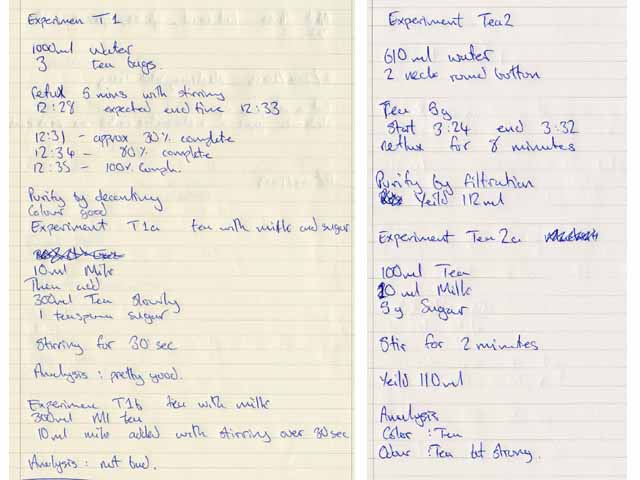 Experimen T1
1000ml Water
3 tea baggs.
Reflux 5 mins with stirring
12:28 expected end time 12:33
12:31 - approx 30% complete
12:34 - 80% complete
12:35 - 100% Comple.
Purify by decenting
Colour good
Experiment T1a tea with milk and sugar
10ml Milk
Then add
300ml Tea Slowly
1 teaspoon sugar
Stirring for 30 sec
Analysis : pretty good.
Experimen T1b tea with milk
300ml Ml tea
10ml milk added with stirring over 30sec
Analysis : not bad.
Experiment Tea2
610 ml water
2 neck round bottom
Tea 5g
Start 3:24 end 3:32
reflux for 8 minutes
Purify by filtration
Yeild 112ml
Experiment Tea 2a
100ml Tea
10 ml Milk
5g Sugar
Stir for 2 minutes
Yeild 110ml
Analysis
Color : Tea
Odour : Tea but strong.